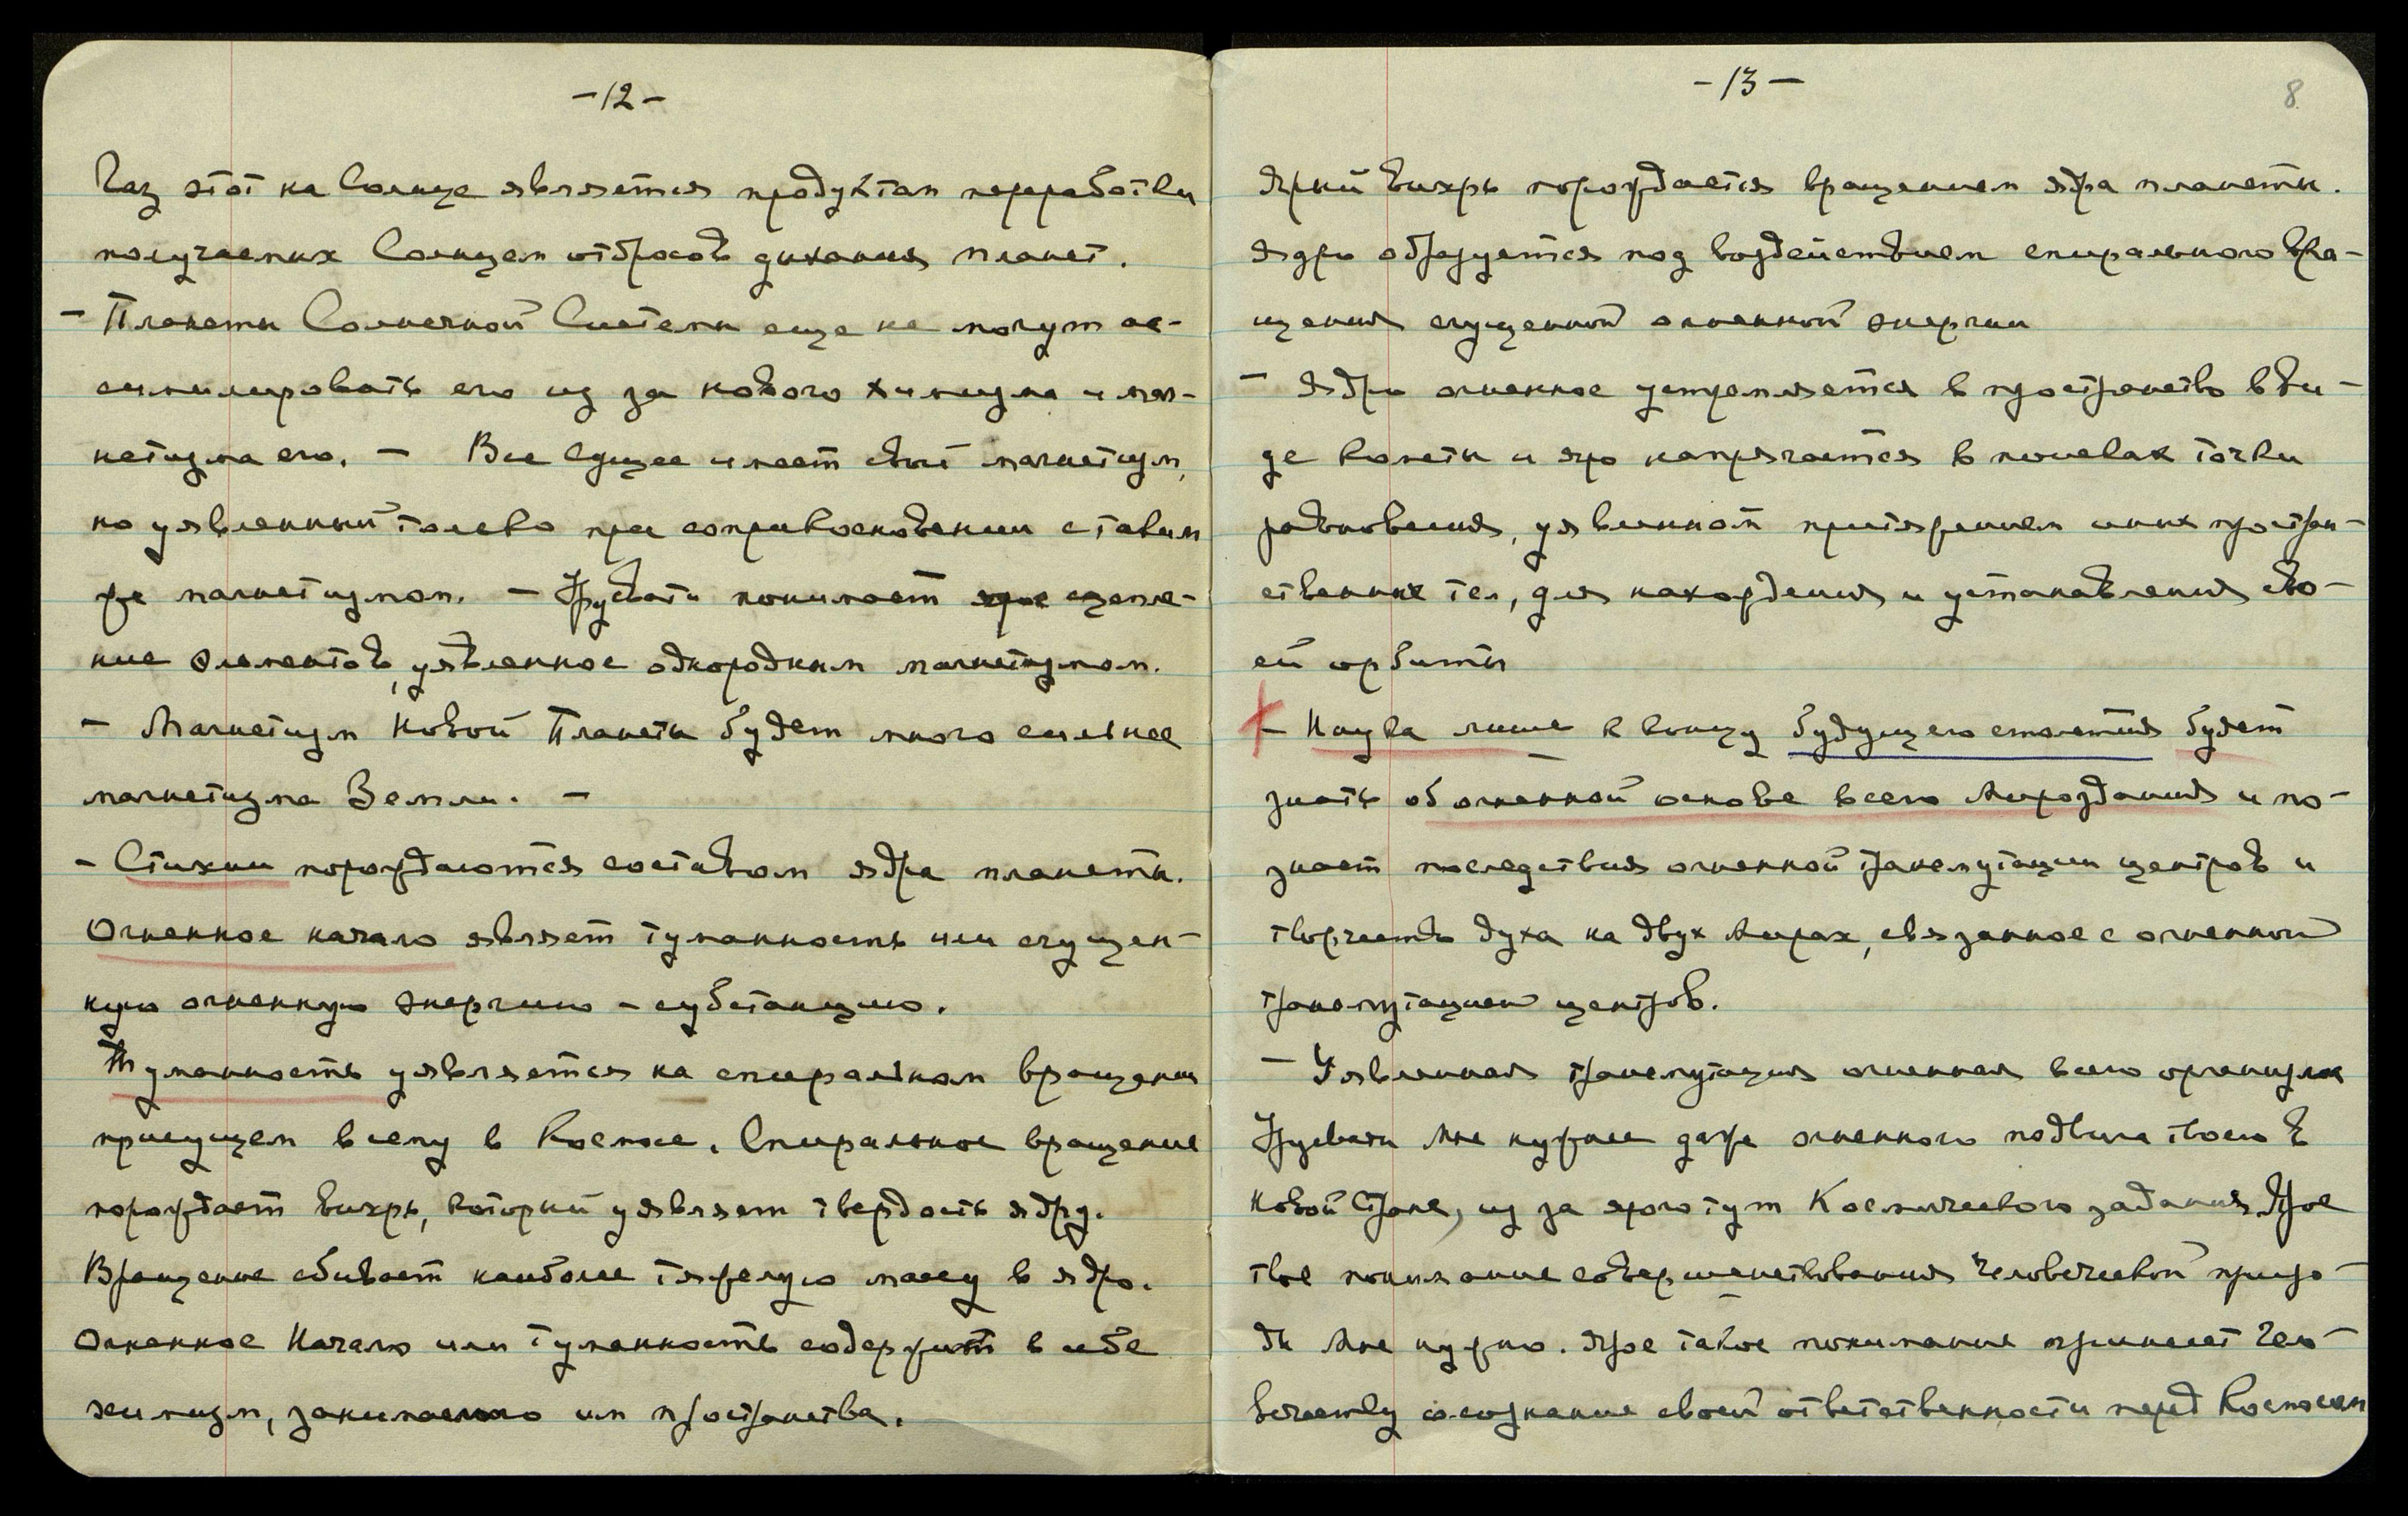 -12-
Газ этот на Солнце является продуктом переработки
получаемых Солнцем отбросов дыхания планет.
- Планеты Солнечной Системы еще не могут ас-
симилировать его из за нового химизма и маг-
нетизма его. - Все Сущее имеет свой магнетизм,
но уявленный только при соприкосновении с таким
же магнетизмом. - Урусвати понимает сцепле-
ние элементов, уявленное однородным магнетизмом.
- Магнетизм Новой Планеты будет много сильнее
магнетизма Земли. -
- Стихии порождаются составом ядра планеты.
Огненное начало являет туманность или сгущен-
ную огненную энергию - субстанцию.
Туманность уявляется на спиральном вращении
присущем всему в Космосе. Спиральное вращение
порождает вихрь, который уявляет твердость ядру.
Вращение сбивает наиболее тяжелую массу в ядро.
Огненное Начало или туманность содержит в себе
химизм, занимаемого им пространства.
-13-
8
Ярый вихрь порождается вращением ядра планеты.
Ядро образуется под воздействием спирального вра-
щения сгущенной огненной энергии
- Ядро огненное устремляется в пространство в ви-
де кометы и яро напрягается в поисках точки
равновесия, уявленной притяжением иных простран-
ственных тел, для нахождения и установления сво-
ей орбиты
- Наука лишь к концу будущего столетия будет
знать об огненной основе всего Мироздания и по-
знает последствия огненной трансмутации центров и
творчество духа на двух Мирах, связанное с огненной
трансмутацией центров.
- Уявленная трансмутация огненная всего организма
Урусвати Мне нужнее даже огненного подвига твоего в
Новой Стране, из за ярого тут Космического задания. Ярое
твое понимание совершенствования человеческой приро-
ды Мне нужно. Ярое такое понимание принесет Чело-
вечеству осознание своей ответственности перед Космосом